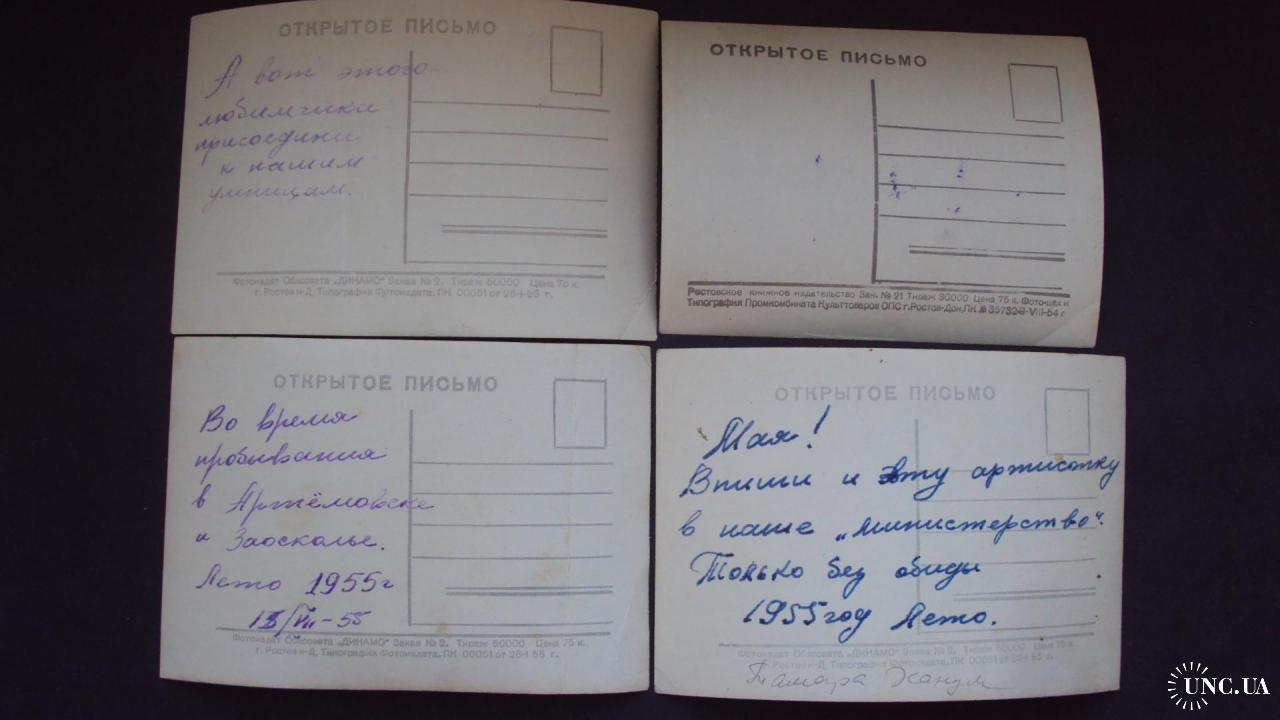 ОТКРЫТОЕ ПИСЬМО
А вот этого
любимчика
присоедини
к нашим
умницам.
Фотоиздат Облсовета „ДИНАМО" Заказ № 2. Тираж 50000 Цена 75 к.
г. Ростов н-Д. Типография Фотоиздата. ПК 00051 от 26-I-55 г.
ОТКРЫТОЕ ПИСЬМО
Ростовское книжное издательство Зак. № 21 Тираж 90000 Цена 75 к. Фото-цех и
Типография Промкомбината Культтоваров ОПС г.Ростов-Дон,ПК № 35732 -VIII-54 г
ОТКРЫТОЕ ПИСЬМО
Во время
пробывания
в Артёмовске
и Заосколье.
Лето 1955г
13/VII-55
Фотоиздат Облсовета „ДИНАМО" Заказ № 2. Тираж 50000 Цена 75 к.
г. Ростов н-Д. Типография Фотоиздата. ПК 00051 от 26-I-55 г.
ОТКРЫТОЕ ПИСЬМО
Мая!
Впиши и эту артистку
в наше „министерство".
Только без обиды
1955 год Лето.
Фотоиздат Облсовета „ДИНАМО" Заказ № 2. Тираж 50000 Цена 75 к
г. Ростов н-Д. Типография Фотоиздата. ПК 00051 от 26-I-55 г.
Тамара Ханум
UNC.UA